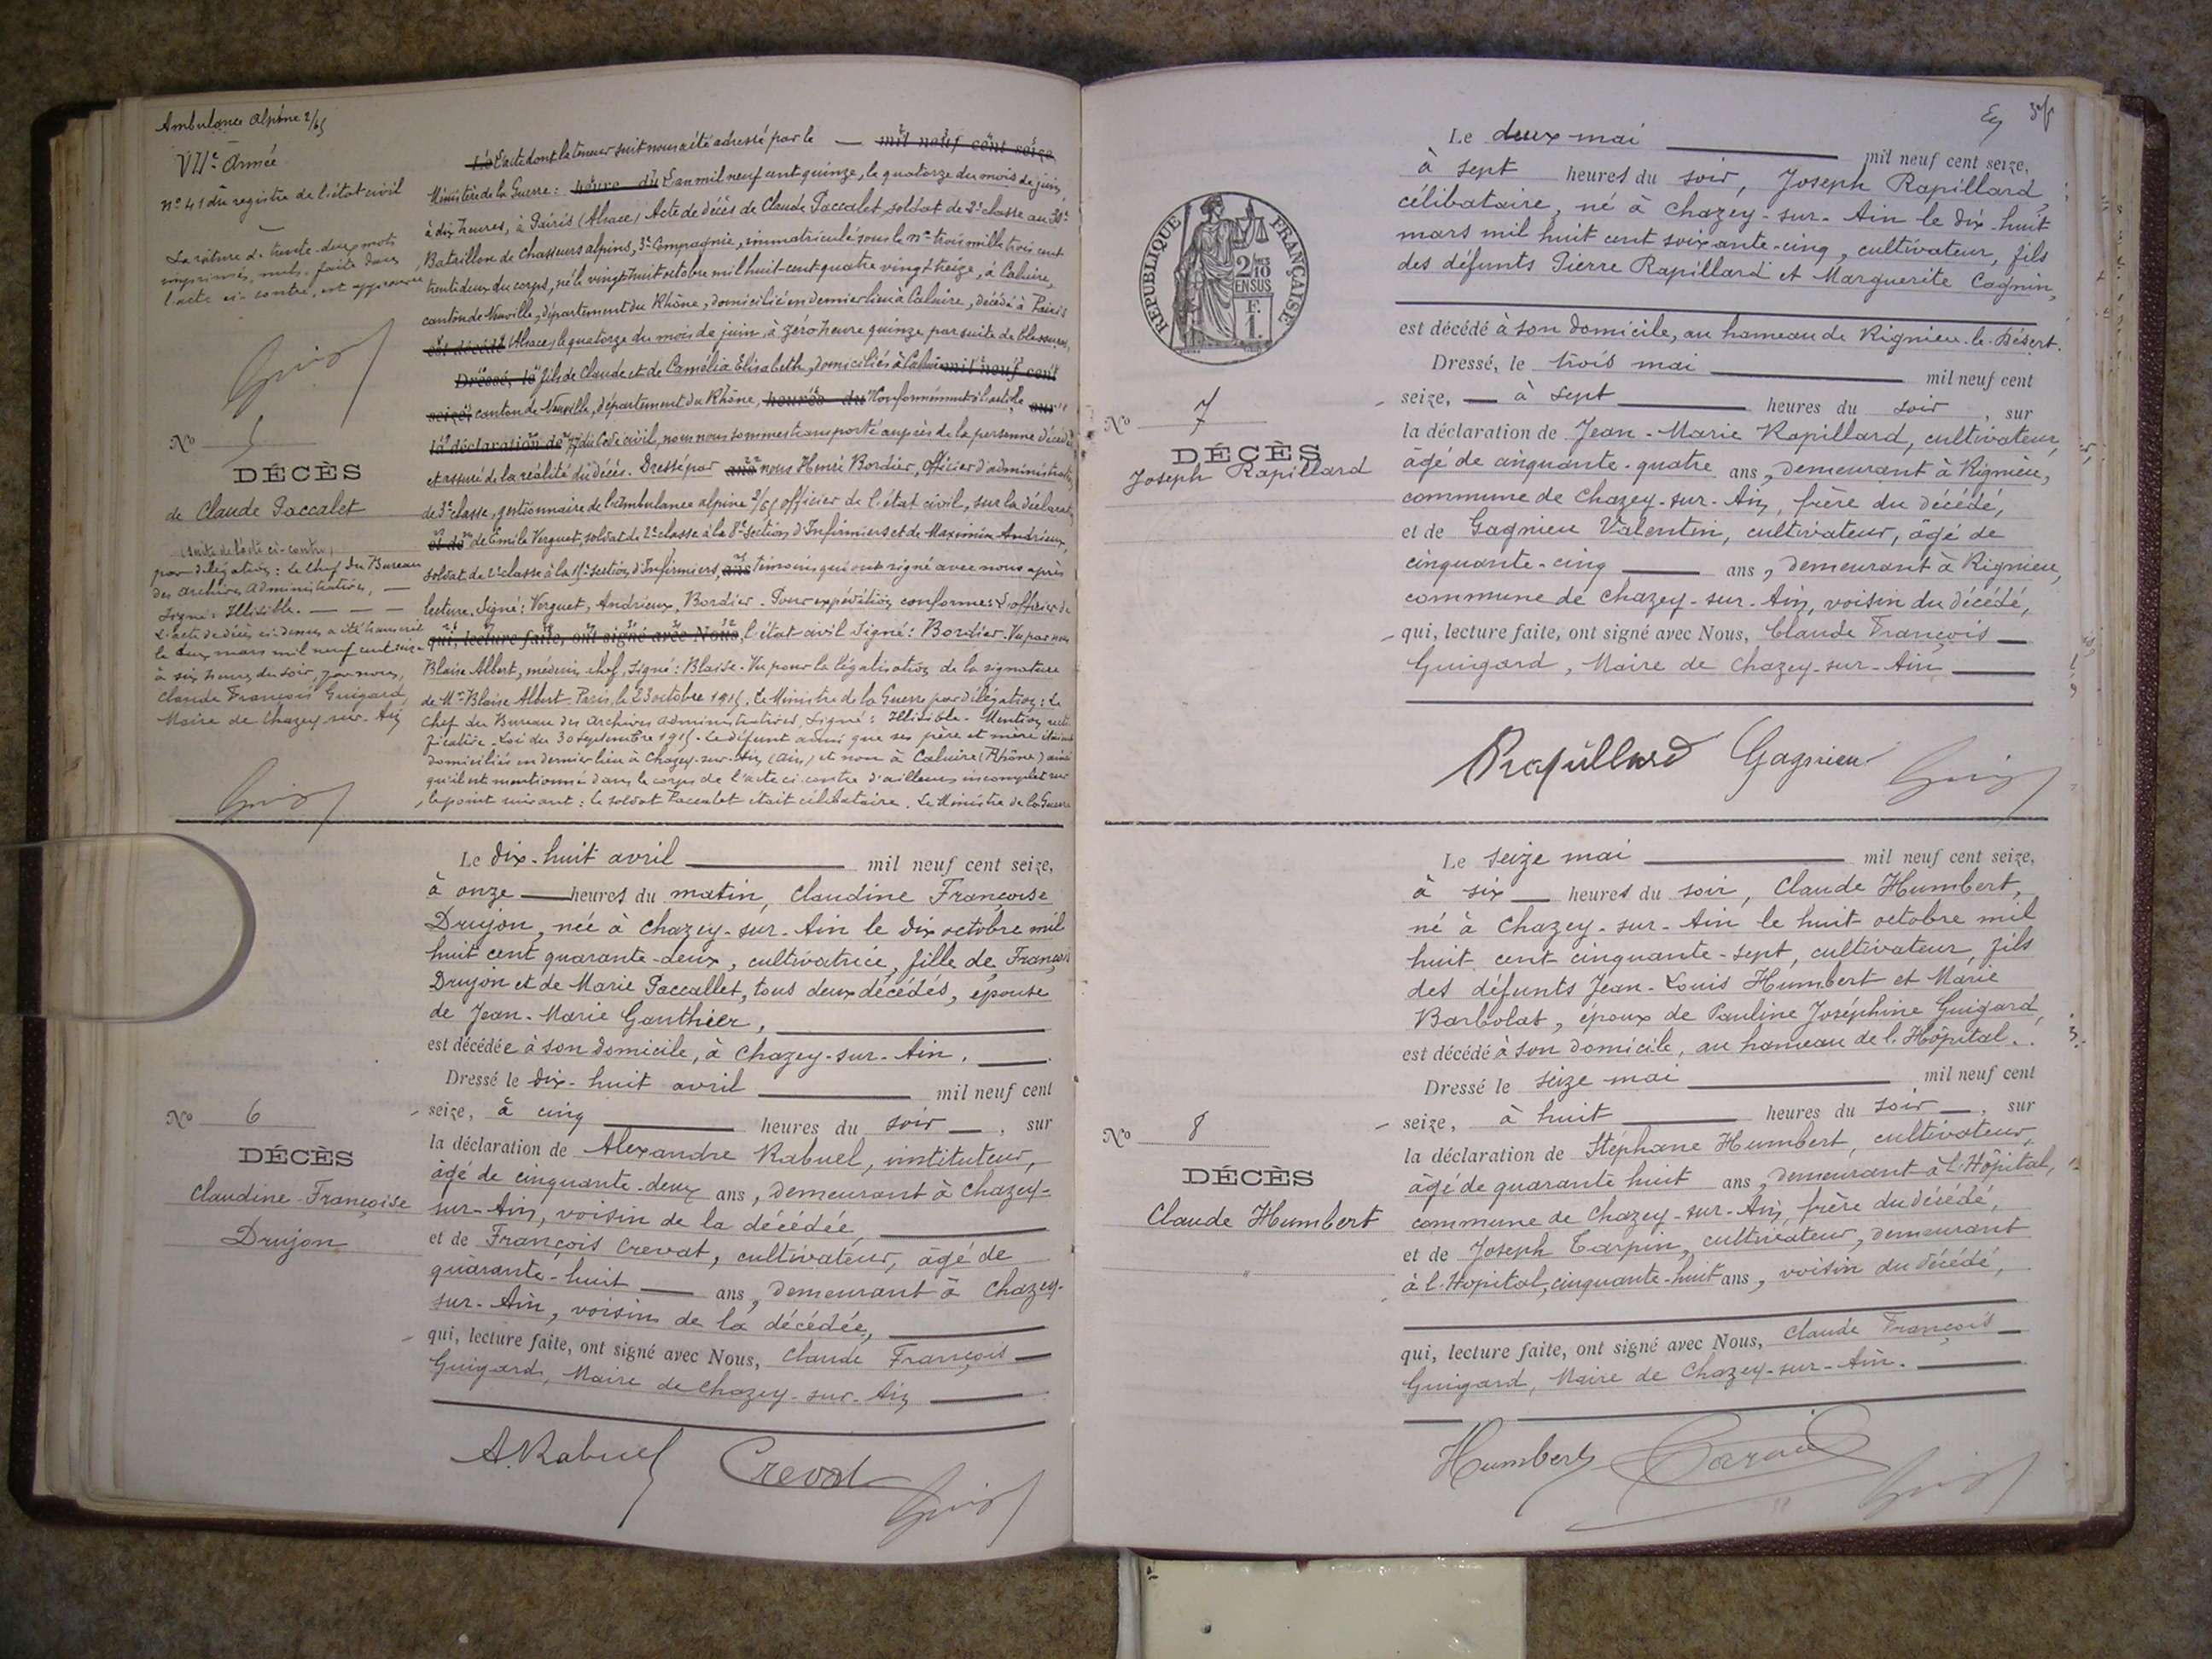 Ambulance alpine 2/65
VIIe Armée
no 41 du registre de l'état civil
La rature de trente-deux mots
imprimés, nuls, faite dans
l'acte ci-contre, est approuvée
No 5
DÉCÈS
de Claude Paccalet
(suite de l'acte ci-contre)
par délégation: Le Chef du Bureau
des archives administratives, —
Signé: Illisible. — — —
L'acte de décès ci-dessus a été transcrit
le deux mars mil neuf cent seize
à six heures du soir, par nous,
Claude François Guigard,
Maire de Chazey-sur-Ain
Le L'acte dont la teneur suit nous a été adressé par le — mil neuf cent seize
Ministère de la Guerre: heure du L'an mil neuf cent quinze, le quatorze du mois de juin,
à dix heures, à Pairis (Alsace) Acte de décès de Claude Paccalet, soldat de 2e classe au 30e
Bataillon de Chasseurs alpins, 3e Compagnie, immatriculé sous le no trois mille trois cent
trente deux du corps, né le vingt huit octobre mil huit cent quatre vingt treize, à Caluire,
canton de Neuville, département du Rhône, domicilié en dernier lieu à Caluire, décédé à Pairis
est décédé (Alsace) le quatorze du mois de juin, à zéro heure quinze par suite de blessures,
Dressé, le fils de Claude et de Camélia Elisabeth, domiciliés à Caluire mil neuf cent
seize, canton de Neuville, département du Rhône, heures du Conformément à l'article sur
la déclaration de 77 du Code civil, nous nous sommes transporté auprès de la personne décédée
et assuré de la réalité du décès. Dressé par ans nous Henri Bordier, Officier d'administration
de 3e classe, gestionnaire de l'ambulance alpine 2/65 officier de l'état civil, sur la déclaration
et de de Emile Verguet, soldat de 2e classe à la 8e Section d'Infirmiers et de Maximin Andrieux,
soldat de 2e classe à la 15e Section d'Infirmiers, ans témoins qui ont signé avec nous après
lecture. Signé: Verguet, Andrieux, Bordier. Pour expédition conforme: L'officier de
qui, lecture faite, ont signé avec Nous, l'état civil Signé: Bordier. Vu par nous
Blaise Albert, médecin chef, signé: Blaise. Vu pour la légalisation de la signature
de Mr Blaise Albert. Paris, le 23 octobre 1915. Le Ministre de la Guerre par délégation: Le
Chef du Bureau des archives administratives, signé: Illisible. Mention recti-
ficative. Loi du 30 septembre 1915. Le défunt ainsi que ses père et mère étaient
domiciliés en dernier lieu à Chazey-sur-Ain (Ain) et non à Caluire (Rhône) ainsi
qu'il est mentionné dans le corps de l'acte ci-contre d'ailleurs incomplet sur
le point suivant: le soldat Paccalet était célibataire. Le Ministre de la Guerre
No 6
DÉCÈS
Claudine Françoise
Drujon
Le dix-huit avril mil neuf cent seize,
à onze heures du matin, Claudine Françoise
Drujon, née à Chazey-sur-Ain le dix octobre mil
huit cent quarante-deux, cultivatrice, fille de François
Drujon et de Marie Paccallet, tous deux décédés, épouse
de Jean-Marie Gauthier,
est décédée à son domicile, à Chazey-sur-Ain.
Dressé le dix-huit avril mil neuf cent
seize, à cinq heures du soir, sur
la déclaration de Alexandre Rabuel, instituteur,
âgé de cinquante-deux ans, demeurant à Chazey-
sur-Ain, voisin de la décédée,
et de François Crevat, cultivateur, âgé de
quarante-huit ans, demeurant à Chazey-
sur-Ain, voisin de la décédée,
qui, lecture faite, ont signé avec Nous, Claude François
Guigard, Maire de Chazey-sur-Ain
A. Rabuel Crevat
RÉPUBLIQUE FRANÇAISE
No 7
DÉCÈS
Joseph Rapillard
Le deux mai mil neuf cent seize,
à sept heures du soir, Joseph Rapillard,
célibataire, né à Chazey-sur-Ain le dix-huit
mars mil huit cent soixante-cinq, cultivateur, fils
des défunts Pierre Rapillard et Marguerite Cagnin,
est décédé à son domicile, au hameau de Rignieu-le-Désert.
Dressé, le trois mai mil neuf cent
seize, à sept heures du soir, sur
la déclaration de Jean-Marie Rapillard, cultivateur,
âgé de cinquante-quatre ans, demeurant à Rignieu,
commune de Chazey-sur-Ain, frère du décédé,
et de Gagnieu Valentin, cultivateur, âgé de
cinquante-cinq ans, demeurant à Rignieu,
commune de Chazey-sur-Ain, voisin du décédé,
qui, lecture faite, ont signé avec Nous, Claude François
Guigard, Maire de Chazey-sur-Ain
Rapillard Gagnieu
No 8
DÉCÈS
Claude Humbert
Le seize mai mil neuf cent seize,
à six heures du soir, Claude Humbert,
né à Chazey-sur-Ain le huit octobre mil
huit cent cinquante-sept, cultivateur, fils
des défunts Jean-Louis Humbert et Marie
Barbolat, époux de Pauline Joséphine Guigard,
est décédé à son domicile, au hameau de l'Hôpital.
Dressé le seize mai mil neuf cent
seize, à huit heures du soir, sur
la déclaration de Stéphane Humbert, cultivateur,
âgé de quarante huit ans, demeurant à l'Hôpital,
commune de Chazey-sur-Ain, frère du décédé,
et de Joseph Tarpin, cultivateur, demeurant
à l'Hopital, cinquante-huit ans, voisin du décédé,
qui, lecture faite, ont signé avec Nous, Claude François
Guigard, Maire de Chazey-sur-Ain.
Humbert